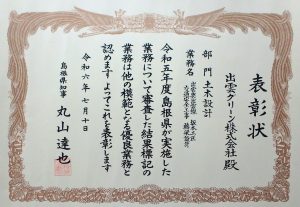 表彰状
出雲グリーン株式会社 殿
部門 土木設計
業務名
令和五年度島根県が実施した
業務について審査した結果標記の
業務は他の模範となる優良業務と
認めます よってこれを表彰します
令和六年七月十日
島根県知事 丸山達也